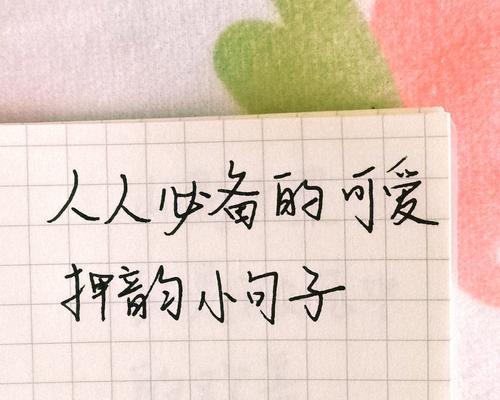 人人必备的可爱
押韵小句子